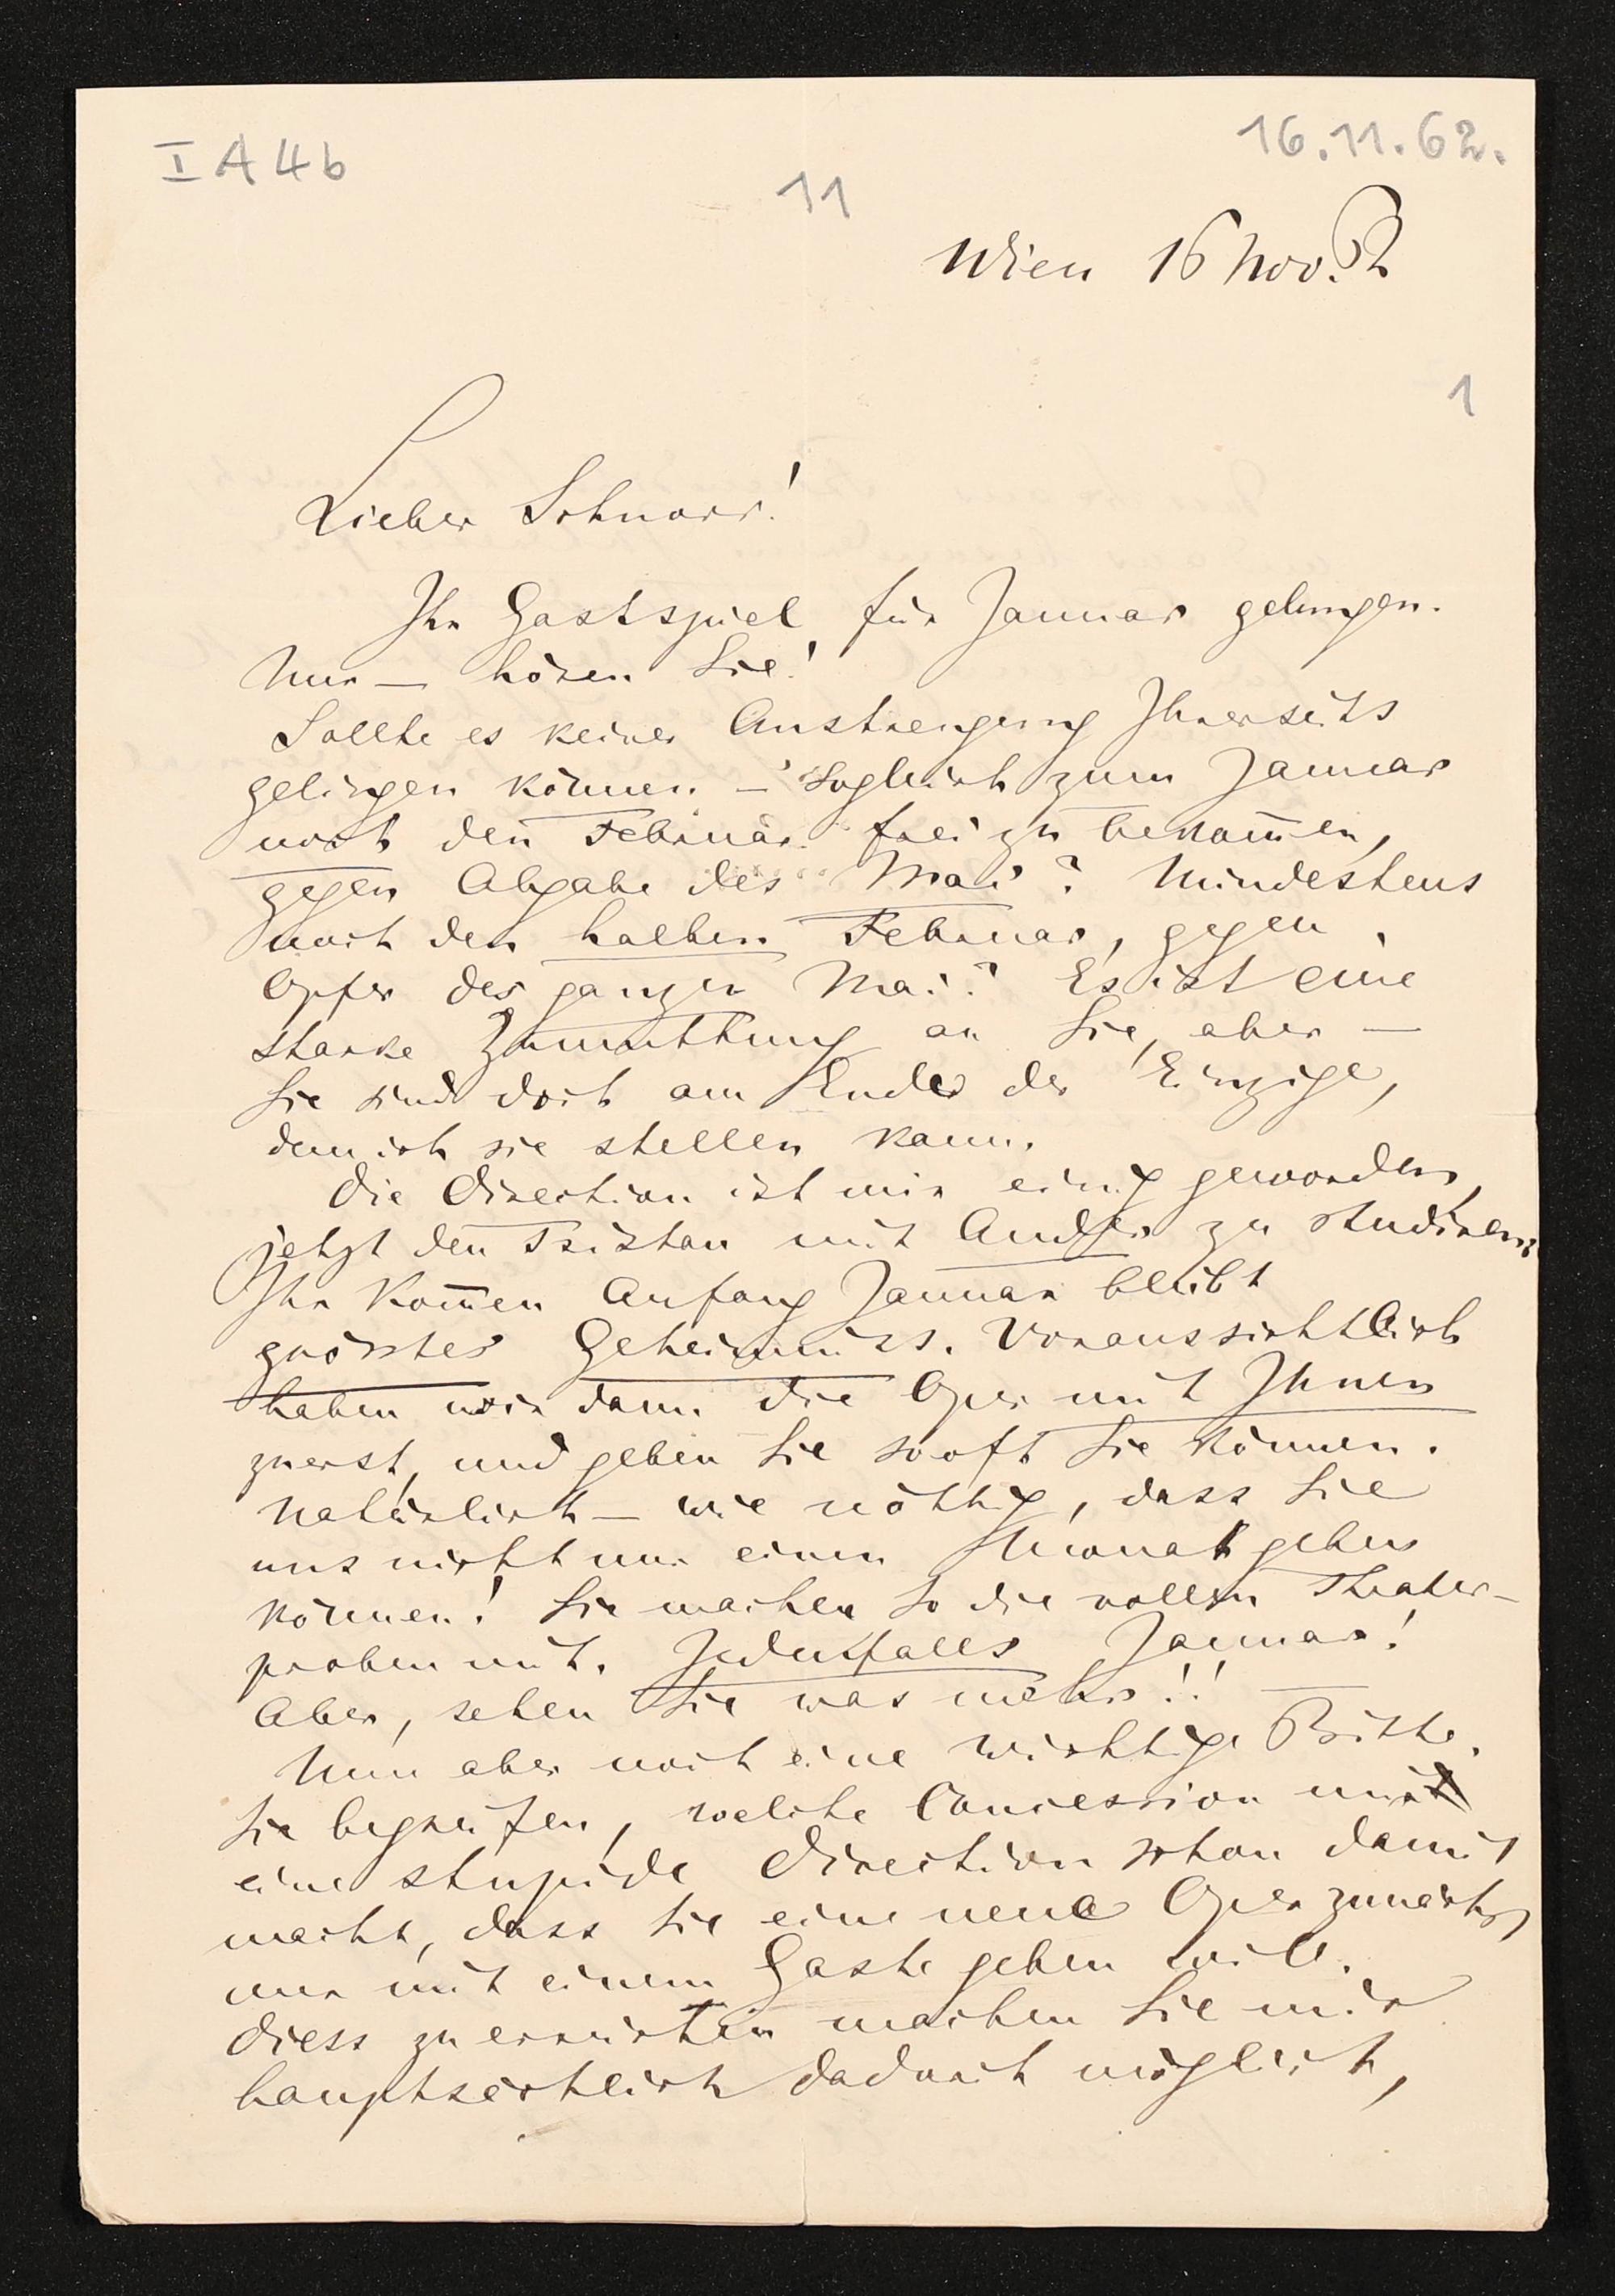 I A 4 b
16.11.62.
11
Wien 16 Nov. 62
1
Lieber Schnorr!
Ihr Gastspiel für Januar gelungen.
Nur — hören Sie!
Sollte es keiner Anstrengung Ihrerseits
gelingen können — sogleich zum Januar
noch den Februar frei zu bekom̅en,
gegen Abgabe des Mai? Mindestens
noch den halben Februar, gegen
Opfer des ganzen Mai? Es ist eine
starke Zumuthung an Sie, aber —
Sie sind doch am Ende der Einzige,
dem ich sie stellen kann.
Die Direction ist mir einig geworden,
jetzt den Tristan mit Ander zu studiren.
Ihr Kom̅en Anfang Januar bleibt
grösstes Geheimniss. Voraussichtlich
haben wir dann die Oper mit Ihnen
zuerst, und geben Sie sooft Sie können.
Natürlich — wie nöthig, dass Sie
uns nicht nur einen Monat geben
können! Sie machen so die vollen Theater-
proben mit. Jedenfalls Januar!
Aber, sehen Sie was mehr!! —
Nun aber noch eine wichtige Bitte.
Sie begreifen, welche Concession mir
eine stupide Direction schon damit
macht, dass sie eine neue Oper zunächst
nur mit einem Gaste geben will.
Diess zu erreichen machen Sie mir
hauptsächlich dadurch möglich,